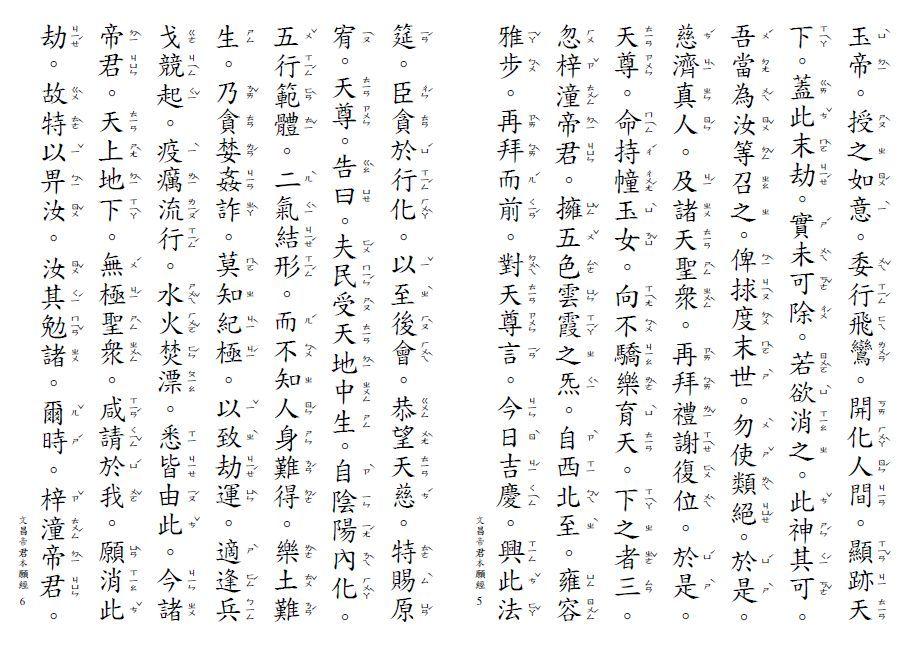 玉帝。授之如意。委行飛鸞。開化人間。顯跡天
下。蓋此末劫。實未可除。若欲消之。此神其可。
吾當為汝等召之。俾捄度末世。勿使類絕。於是。
慈濟真人。及諸天聖眾。再拜禮謝復位。於是。
天尊。命持幢玉女。向不驕樂育天。下之者三。
忽梓潼帝君。擁五色雲霞之炁。自西北至。雍容
雅步。再拜而前。對天尊言。今日吉慶。興此法
文昌帝君本願經 5
筵。臣貪於行化。以至後會。恭望天慈。特賜原
宥。天尊。告曰。夫民受天地中生。自陰陽內化。
五行範體。二氣結形。而不知人身難得。樂土難
生。乃貪婪姦詐。莫知紀極。以致劫運。適逢兵
戈競起。疫癘流行。水火焚漂。悉皆由此。今諸
帝君。天上地下。無極聖眾。咸請於我。願消此
劫。故特以畀汝。汝其勉諸。爾時。梓潼帝君。
文昌帝君本願經 6